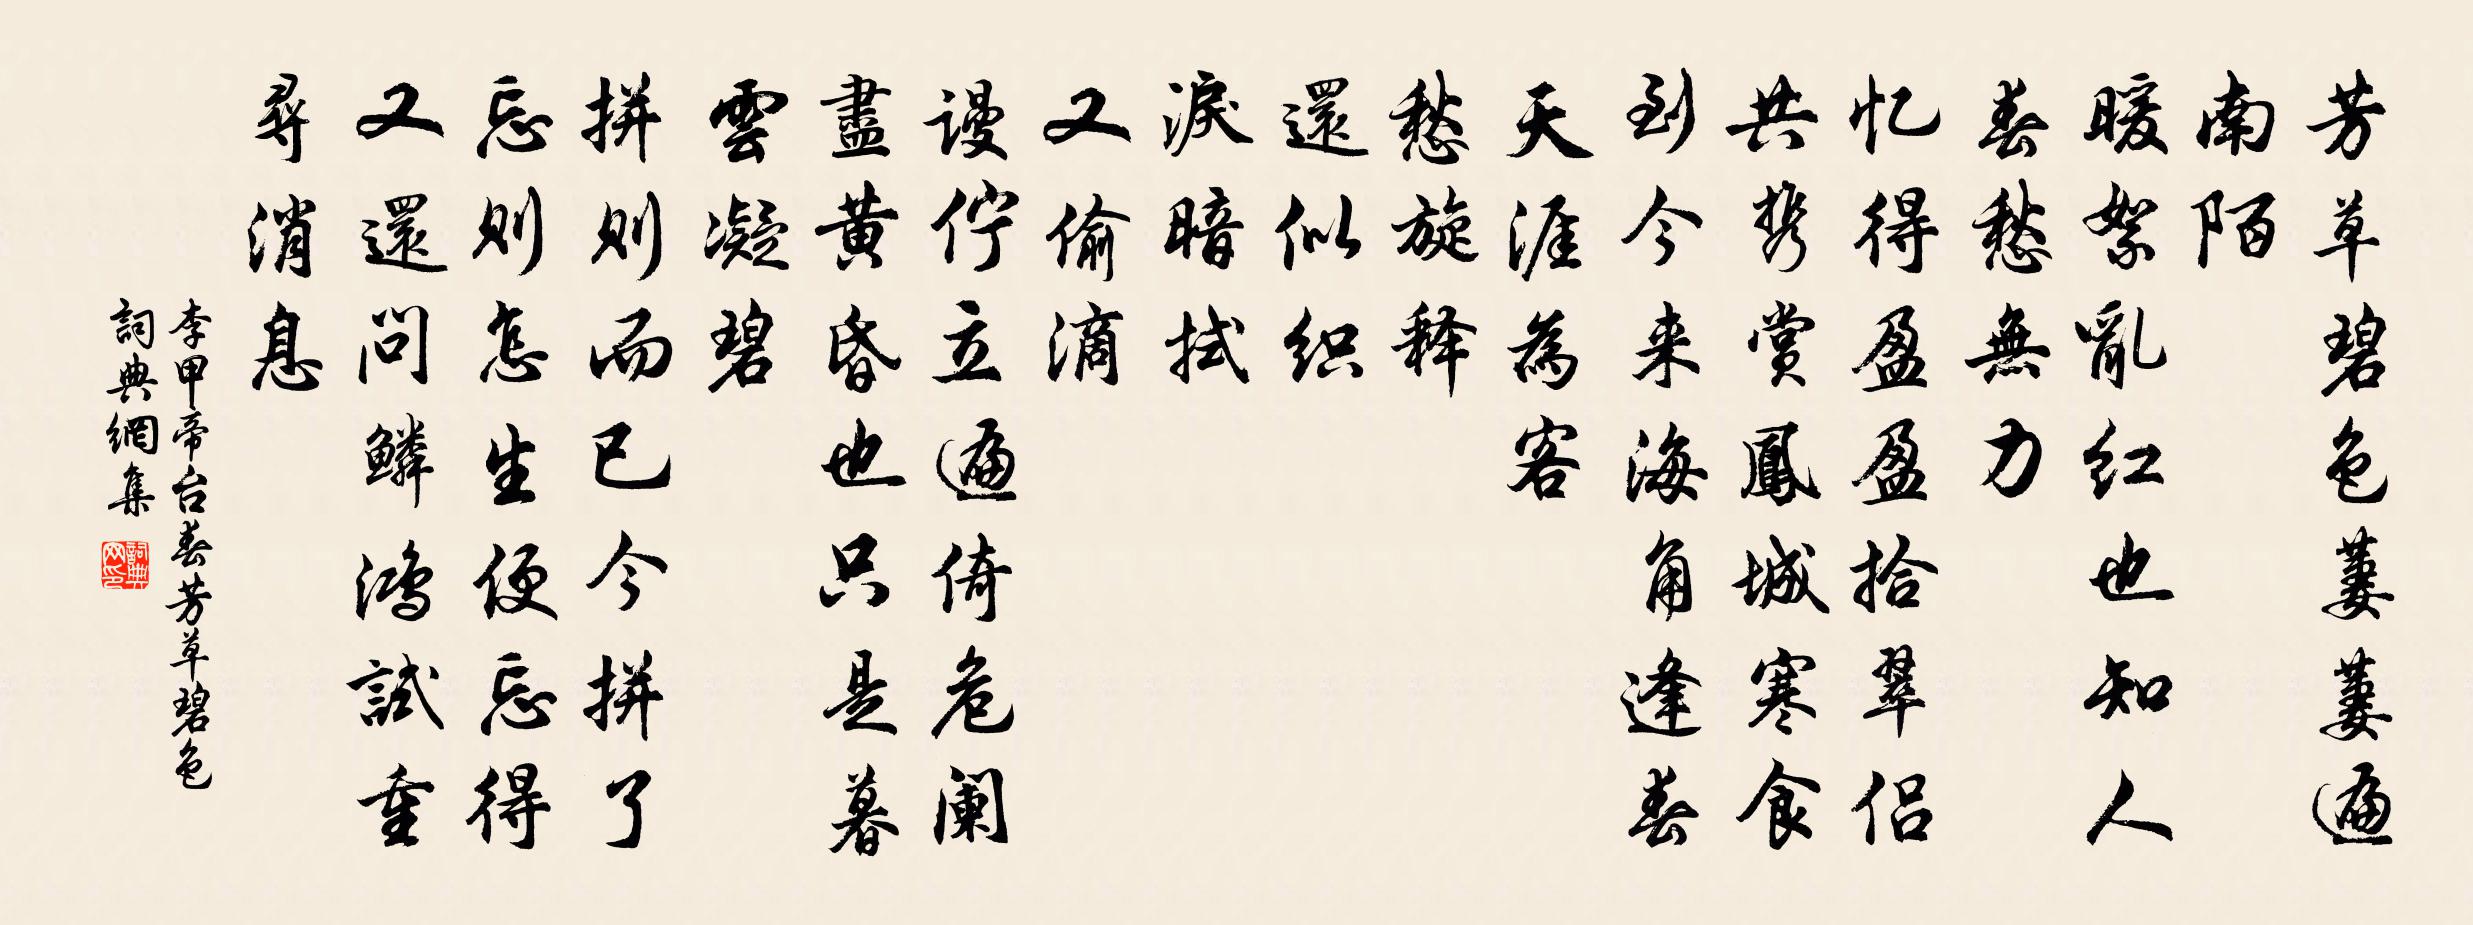 芳草碧色萋萋遍
南陌
暖絮亂红也知人
春愁無力
忆得盈盈拾翠侣
共携赏鳳城寒食
到今来海角逢春
天涯為客
愁旋释
還似织
淚暗拭
又偷滴
谩佇立遍倚危阑
盡黄昏也只是暮
雲凝碧
拼则而已今拼了
忘则怎生便忘得
又還问鱗鸿試重
尋消息
李甲帝台春芳草碧色
詞典網集
詞典网印